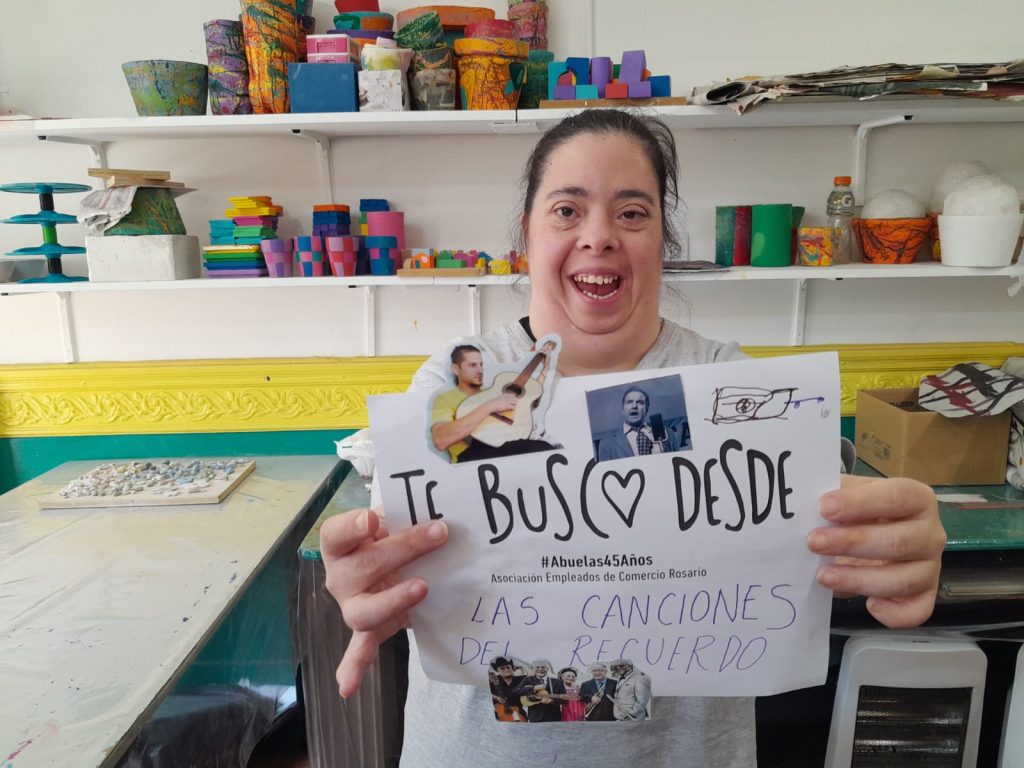 TE BUSCO DESDE
#Abuelas45Años
Asociación Empleados de Comercio Rosario
LAS CANCIONES
DEL RECUERDO